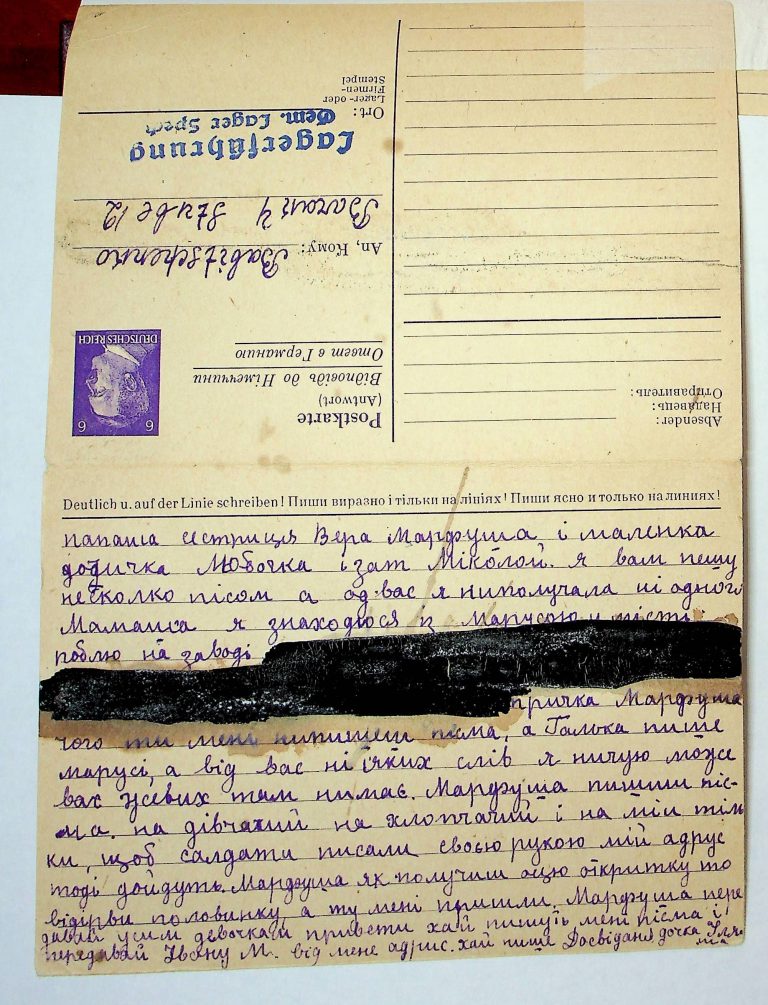 Postkarte
(Antwort)
Відповідь до Німеччини
Ответ в Германию
6 6
DEUTSCHES REICH
An, Кому: Babitschenko
Barak 4 Stube 12
Ort: Lagerführung
Gem. Lager Spech
Lager- oder
Firmen-
Stempel
Absender:
Надавець:
Отправитель:
Deutlich u. auf der Linie schreiben! Пиши виразно і тільки на лініях! Пиши ясно и только на линиях!
папаша сестриця Вера Марфуша і маленка
дочичка Любочка і зат Міколой. я вам пешу
несколко пісом а од вас я ниполучала ні одного
Мамашка я знаходюся із Марусою у мість
роблю на заводі
Марфуша
чого ти мені нипишеш пісма, а Галька пише
марусі, а від вас ні яких слів я ничую може
вах усевих там нимає. Марфуша пишіт піс-
ма. на дівчачий на хлопчачий і на мій тіль
ки, щоб салдати писали своєю рукою мій адрус
тоді дойдуть. Марфуша як получиш оцю открытку то
відірви половинку, а ту мені пришли. Марфуша пере
давай усим девочкам привети хай пишуть мені пісма і
передавай Івану М. від мене адрис. хай пише Досвіданя дочка